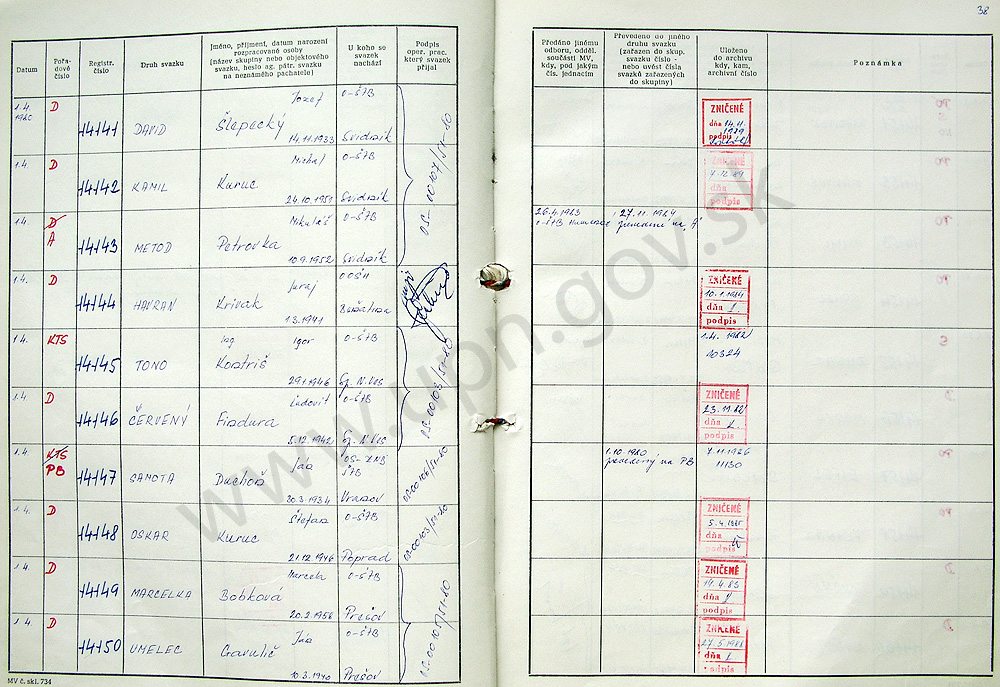 38
Datum
Pořa-
dové
číslo
Registr.
číslo
Druh svazku
Jméno, příjmení, datum narození
rozpracované osoby
(název skupiny nebo objektového
svazku, heslo ag. pátr. svazku
na neznámého pachatele)
U koho se
svazek
nachází
Podpis
oper. prac.
který svazek
přijal
Předáno jinému
odboru, odděl.
součásti MV,
kdy, pod jakým
čís. jednacím
Převedeno do jiného
druhu svazku
(zařazen do skup.
svazku číslo -
nebo uvést čísla
svazků zařazených
do skupiny)
Uloženo
do archivu
kdy, kam,
archivní číslo
Poznámka
1.4. D Jozef O-ŠTB
14141 DAVID Šlepecký
14.11.1933 Svidník
ZNIČENÉ
dňa 14.11.
1989
podpis
1.4. D Michal O-ŠTB
14142 KAMIL Kuruc
24.10.1951 Svidník
05-00107/51-80
ZNIČENÉ
7.12.89
dňa
podpis
1.4. D Mikuláš O-ŠTB
A
14143 METOD Petrovka
10.9.1952 Svidník
26.4.1983 27.11.1984
O-ŠTB Humenné
1.4. D Juraj
14144 HAVRAN Krivak
1.3.1941
ZNIČENÉ
10.1.1984
dňa
podpis
1.4. KTS Ing. Igor O-ŠTB
14145 TONO
29.1.1946 Sp. N. Ves
1.4. 1982
10324
1.4. D Ľudovít O-ŠTB
14146 ČERVENÝ Findura
5.12.1942 Sp. N. Ves
05-00103/51-80
ZNIČENÉ
23.11.
dňa
podpis
1.4. KTS Ján
PB ŠTB
14147 SAMOTA Duchoň
30.3.1934 Vranov
05-00106/51-80
1.10.1980
prevedený na PB
11130
1.4. D Štefan O-ŠTB
14148 OSKAR Kuruc
21.12.1946 Poprad
05-00103/51-80
ZNIČENÉ
5.4.
dňa
podpis
1.4. D Marcela O-ŠTB
14149 MARCELKA Bobková
20.2.1956 Prešov
ZNIČENÉ
14.4.83
dňa
podpis
1.4. D Ján O-ŠTB
14150 UMELEC Gavulič
10.3.1940 Prešov
05-00105/51-80
ZNIČENÉ
27.5.
dňa
podpis
MV č. skl. 734
www.upn.gov.sk